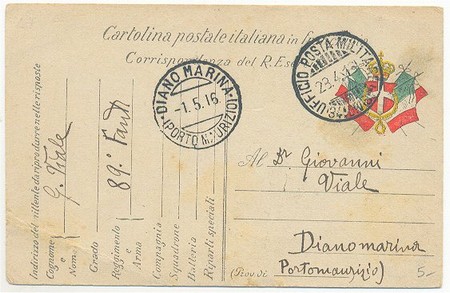 Cartolina postale italiana in
Corrispondenza del R. Es
DIANO MARINA
-1.5.16
(PORTO MAURIZIO)
UFFICIO POSTA MILITA
Al Dr Giovanni
Viale
Dianomarina
(Prov. di Portomaurizio)
5-
Indirizzo del mittente da riprodurre nelle risposte
Cognome e Nome G. Viale
Grado
Reggimento e Arma 89º Fant
Compagnia
Squadrone
Batteria
Riparti speciali